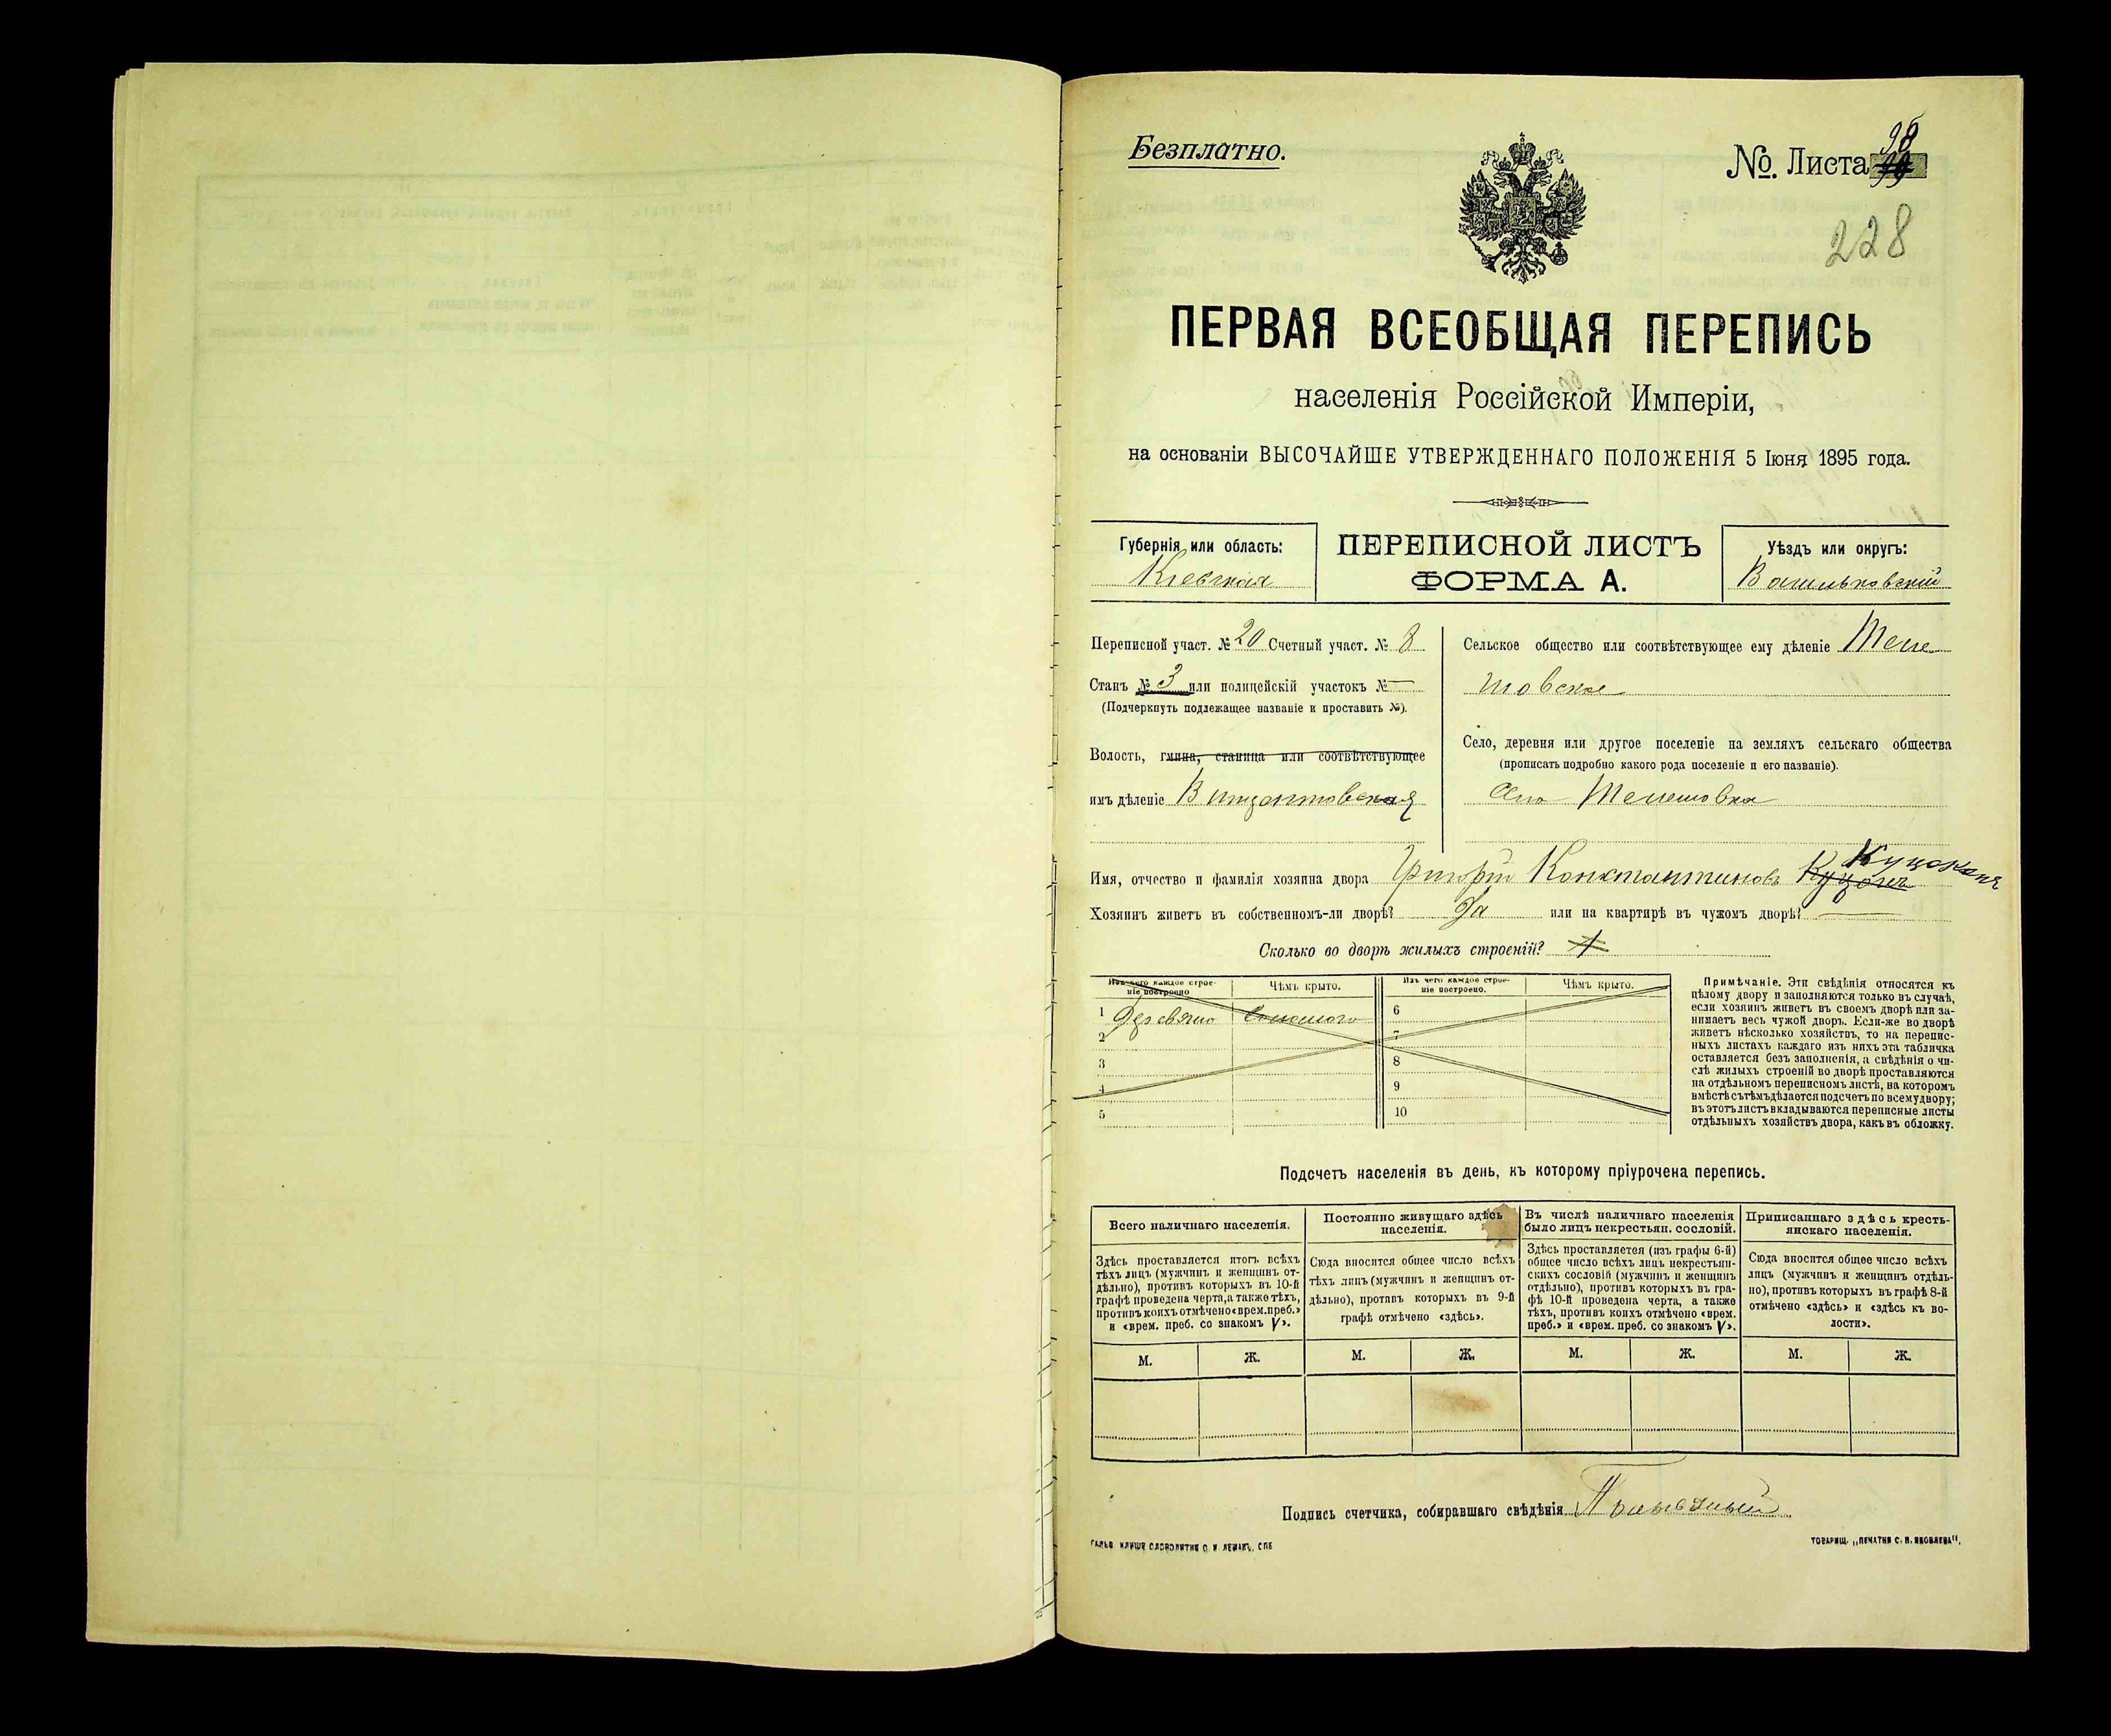 Безплатно.
№. Листа 98
99
228
ПЕРВАЯ ВСЕОБЩАЯ ПЕРЕПИСЬ
населенія Россійской Имперіи,
на основаніи ВЫСОЧАЙШЕ УТВЕРЖДЕННАГО ПОЛОЖЕНІЯ 5 Іюня 1895 года.
Губернія или область:
Кіевская
ПЕРЕПИСНОЙ ЛИСТЪ
ФОРМА А.
Уѣздъ или округъ:
Васильковскій
Переписной участ. № 20 Счетный участ. № 8
Станъ № 3 или полицейскій участокъ № —
(Подчеркнуть подлежащее названіе и проставить №).
Волость, гмина, станица или соотвѣтствующее
имъ дѣленіе Винцентовская
Сельское общество или соотвѣтствующее ему дѣленіе Теле
шовское
Село, деревня или другое поселеніе на земляхъ сельскаго общества
(прописать подробно какого рода поселеніе и его названіе).
Село Телешовка
Куцоконь
Имя, отчество и фамилія хозяина двора Григорій Константиновъ
Хозяинъ живетъ въ собственномъ-ли дворѣ? Да или на квартирѣ въ чужомъ дворѣ? —
Сколько во дворѣ жилыхъ строеній? 1
Изъ чего каждое строе-
ніе построено
Чѣмъ крыто.
Изъ чего каждое строе-
ніе построено.
Чѣмъ крыто.
1 Деревяно Соломою 6
2 7
3 8
4 9
5 10
Примѣчаніе. Эти свѣдѣнія относятся къ
цѣлому двору и заполняются только въ случаѣ,
если хозяинъ живетъ въ своемъ дворѣ или за-
нимаетъ весь чужой дворъ. Если-же во дворѣ
живетъ нѣсколько хозяйствъ, то на перепис-
ныхъ листахъ каждаго изъ нихъ эта табличка
оставляется безъ заполненія, а свѣдѣнія о чи-
слѣ жилыхъ строеній во дворѣ проставляются
на отдѣльномъ переписномъ листѣ, на которомъ
вмѣстѣ съ тѣмъ дѣлается подсчетъ по всему двору;
въ этотъ листъ вкладываются переписные листы
отдѣльныхъ хозяйствъ двора, какъ въ обложку.
Подсчетъ населенія въ день, къ которому пріурочена перепись.
Всего наличнаго населенія.
Здѣсь проставляется итогъ всѣхъ
тѣхъ лицъ (мужчинъ и женщинъ от-
дѣльно), противъ которыхъ въ 10-й
графѣ проведена черта, а также тѣхъ,
противъ коихъ отмѣчено «врем. преб.»
и «врем. преб. со знакомъ V».
Постоянно живущаго здѣсь
населенія.
Сюда вносится общее число всѣхъ
тѣхъ лицъ (мужчинъ и женщинъ от-
дѣльно), противъ которыхъ въ 9-й
графѣ отмѣчено «здѣсь».
Въ числѣ наличнаго населенія
было лицъ некрестьян. сословій.
Здѣсь проставляется (изъ графы 6-й)
общее число всѣхъ лицъ некрестьян-
скихъ сословій (мужчинъ и женщинъ
отдѣльно), противъ которыхъ въ гра-
фѣ 10-й проведена черта, а также
тѣхъ, противъ коихъ отмѣчено «врем.
преб.» и «врем. преб. со знакомъ V».
Приписаннаго здѣсь кресть-
янскаго населенія.
Сюда вносится общее число всѣхъ
лицъ (мужчинъ и женщинъ отдѣль-
но), противъ которыхъ въ графѣ 8-й
отмѣчено «здѣсь» и «здѣсь къ во-
лости».
М. Ж. М. Ж. М. Ж. М. Ж.
Подпись счетчика, собиравшаго свѣдѣнія
ГАЛЬВ. КЛИШЕ СЛОВОЛИТНИ О. И. ЛЕМАНЪ, СПБ
ТОВАРИЩ. „ПЕЧАТНЯ С. П. ЯКОВЛЕВА".